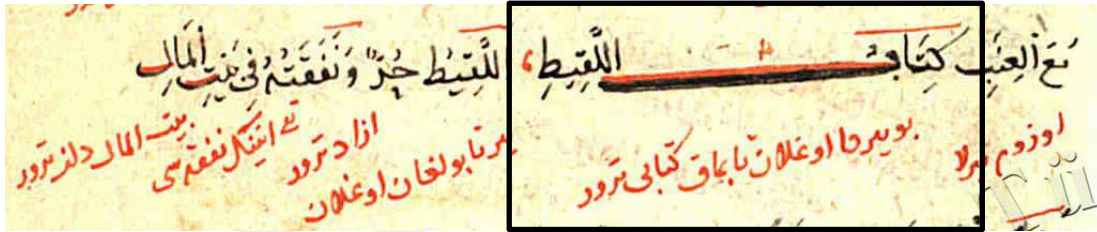 مَعَ الْعِنَبِ كِتَابُ اللَّقِيطِ، اللَّقِيطُ حُرٌّ وَنَفَقَتُهُ فِي بَيْتِ الْمَالِ
اوزوم بيرلا بو يردا اوغلان تابماق كتابى ترور
تابولغان اوغلان ازاد ترور نفقه سى بيت المال دا